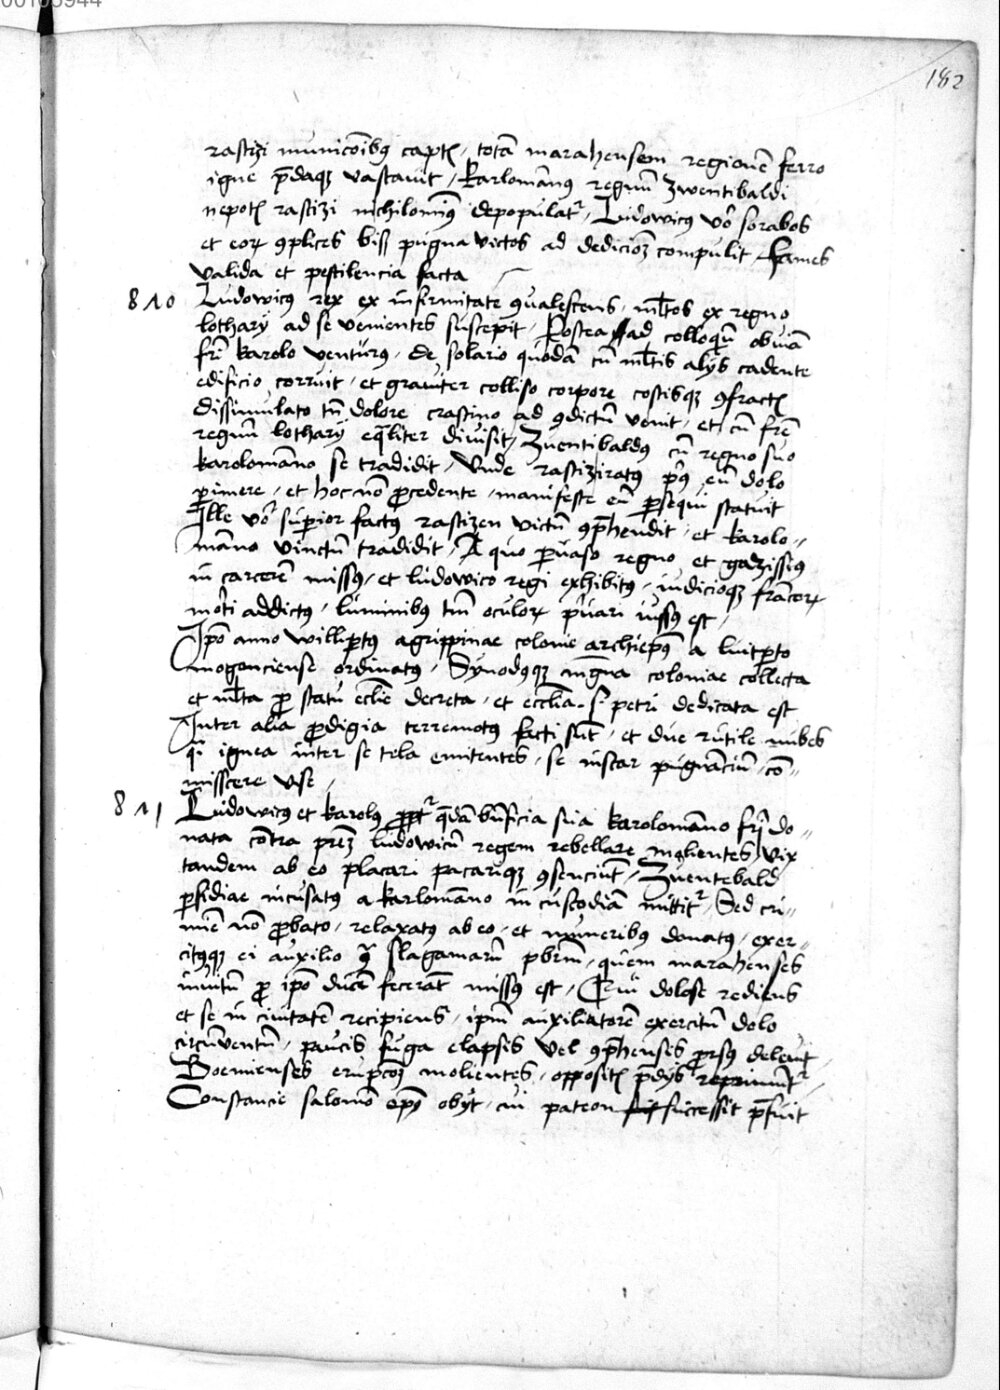 00103944
182
rastizi municōibꝰ captꝭ, totā marahensem regionē ferro
igne p̄daqꝫ vastavit, Karlomānꝰ regnū Zwentibaldi
nepotꝭ rastizi nichilominꝰ depopulatʳ, Ludowicꝰ vo᷑ sorabos
et eoꝝ ꝯplices biß pugna victos ad dediciōꝫ compulit, Fames
valida et pestilencia facta
870 Ludowicꝰ rex ex infirmitate ꝯualescens, ml̄tos ex regno
lotharÿ ad se venientes suscepit, Postea ad colloqūm obviā
fri̅ karolo venturꝰ, de solario quodā cū ml̄tis alÿs cadente
edificio corruit, et graviter colliso corpore costisqꝫ ꝯfractꝭ
dissimulato tn̄ dolore crastino ad ꝯdictū venit, et cū fr̄e
regnū lotharÿ eq̄liter divisit, Zuentibaldꝰ cū regno suo
karolomāno se tradidit, Vnde rastizi iratꝰ pꝰ eū dolo
ꝑimere, et hoc nō ꝓcedente, manifeste eū ꝑsequi statuit
Ille vo᷑ suꝑior factꝰ rastizen victū ꝯp̄hendit, et karolo-
māno vinctū tradidit, A quo ꝑvaso regno et gazis eiꝰ
in carcerē missꝰ, et ludowico regi exhibitꝰ, iudicioqꝫ francoꝝ
morti addictꝰ, luminibꝰ tm̄ oculoꝝ pͥvari iussꝰ est,
Ipo anno willipertꝰ agrippinae colonie archiepūs a luitꝑto
mogonciense ordinatꝰ, Synodꝰqꝫ magna coloniae collecta
et ml̄ta ꝓ statu eccl̄ie decreta, et eccl̄ia s. petri dedicata est
Inter alia ꝓdigia terremotꝰ facti sūt, et due rutile nubes
q̄i ignea inter se tela emittentes, se instar pugnanciū, cō-
misscere vise,
871 Ludowicꝰ et karolꝰ ꝓptʳ q̄dā bn̄ficia sua karolomāno frī do-
nata cōtra prēꝫ ludowicū regem rebellare molientes, vix
tandem ab eo placari pacariqꝫ ꝯsenciūt, Zuentebald
ꝑfidiae incusatꝰ a karlomāno in custodiā mittitʳ, Sed cri-
mīe nō ꝓbato, relaxatꝰ ab eo, et muneribꝰ donatꝰ, exer-
citꝰqꝫ ei auxilio cͣ slagamarū pbrm̄, quem marahenses
invitū ꝓ ipo ducē fecerāt missꝰ est, Qui dolose rediens
et se in civitatē recipiens, ipm̄ auxiliatorē exercitū dolo
circūventū, paucis fuga elapsis vel ꝯp̄hensis prorsꝰ delevit
Boemienses erupcōꝫ molientes, oppositꝭ p̄dijs reprimūtʳ,
Constancie salomō epūs obÿt, cui pateon successit p̄fuit